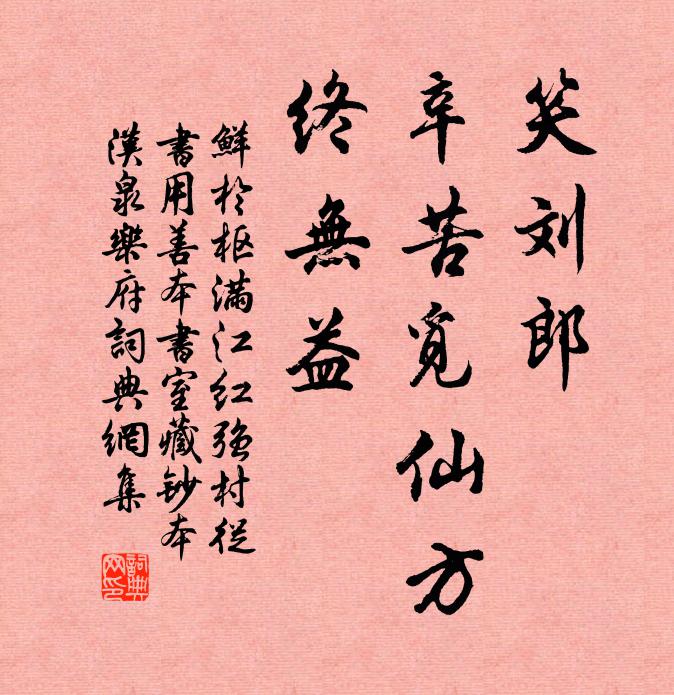 笑刘郎
辛苦觅仙方
终無益
鮮於枢满江红强村從
書用善本書室藏鈔本
漢泉樂府詞典網集
詞典网印